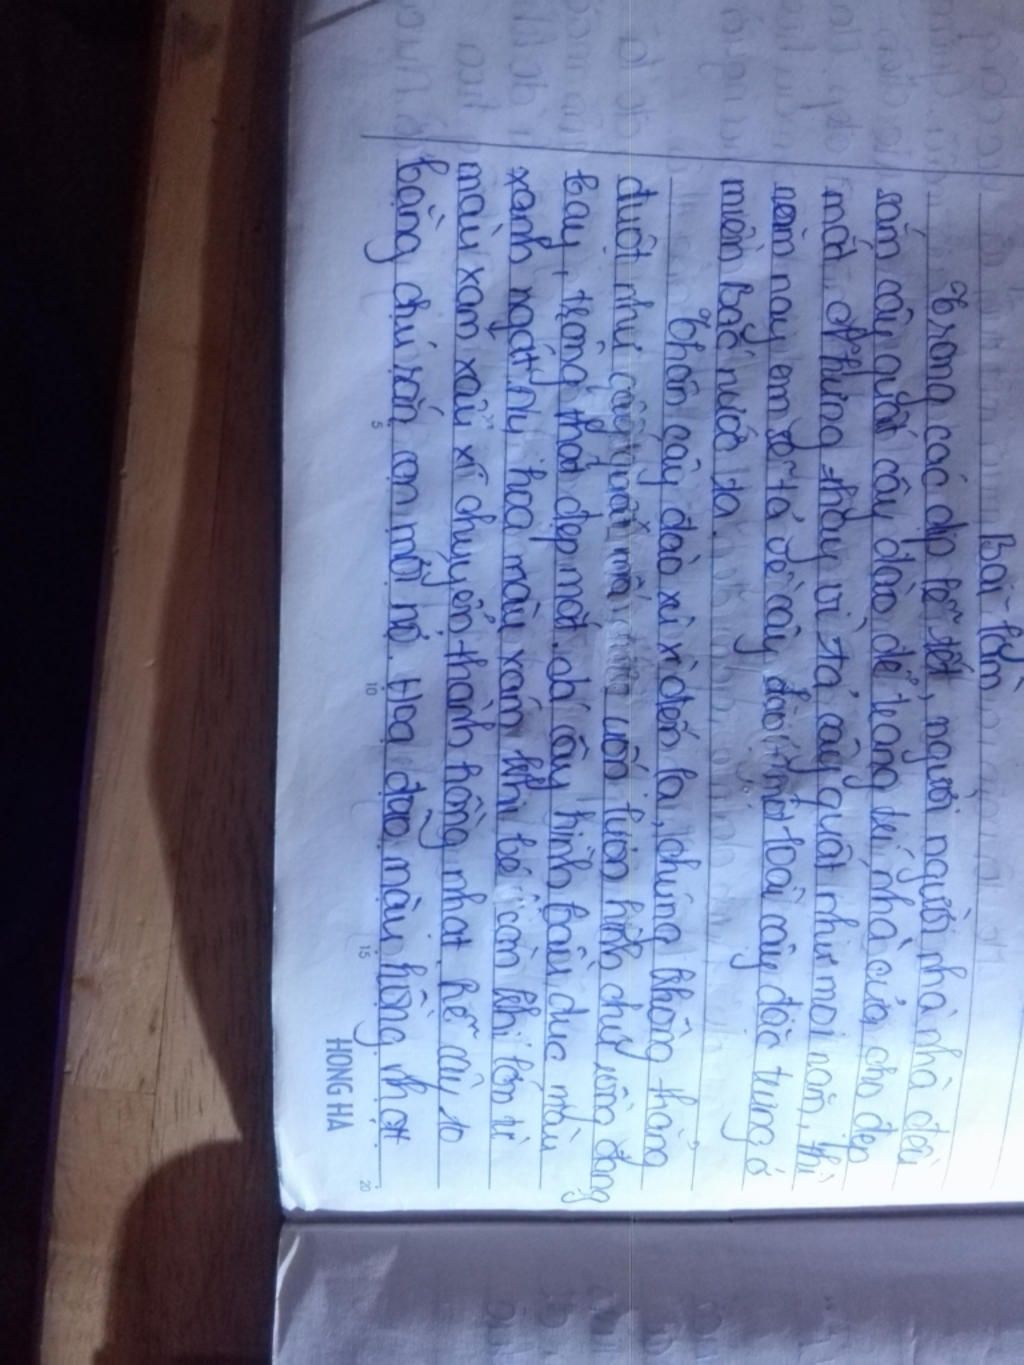 Bài làm
Trong các dịp lễ tết, người người nhà nhà đều
sắm cây quất cây đào để trang trí nhà cửa cho đẹp
mắt. Nhưng thay vì tả cây quất như mọi năm, thì
năm nay em sẽ tả về cây đào một loài cây đặc trưng ở
miền Bắc nước ta.
Thân cây đào xù xì đến lạ, chúng không thẳng
đuột như cây quất mà uốn lượn hình chữ rồng đang
bay, trông thật đẹp mắt. Lá cây hình bầu dục màu
xanh ngát. Nụ hoa màu xám khi bé còn khi lớn từ
màu xám xấu xí chuyển thành hồng nhạt. Rễ cây to
bằng chú rắn con mới nở. Hoa đào màu hồng nhạt
5
10
15
20
HONG HA